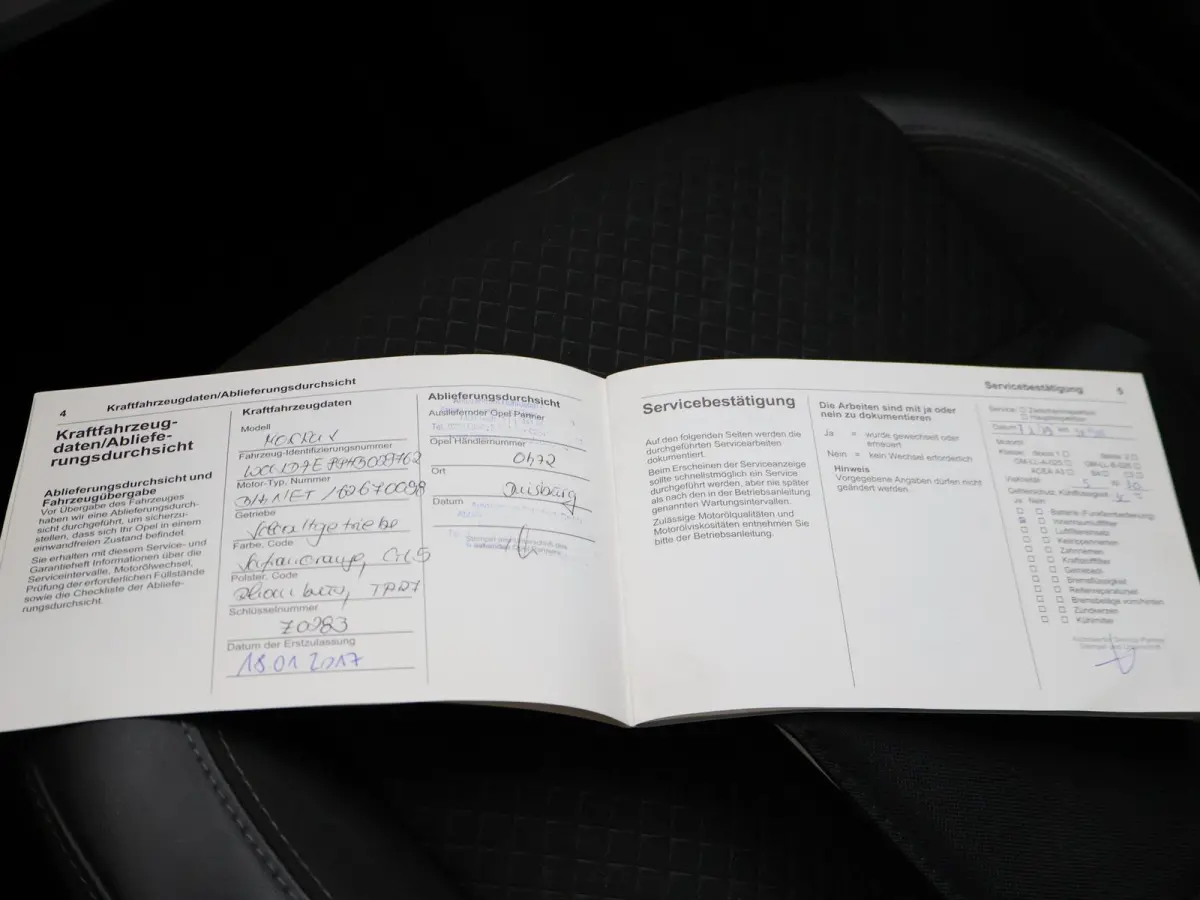 4 Kraftfahrzeugdaten/Ablieferungsdurchsicht
Kraftfahrzeug-
daten/Abliefe-
rungsdurchsicht
Ablieferungsdurchsicht und
Fahrzeugübergabe
Vor Übergabe des Fahrzeuges
haben wir eine Ablieferungsdurch-
sicht durchgeführt, um sicherzu-
stellen, dass sich Ihr Opel in einem
einwandfreien Zustand befindet.
Sie erhalten mit diesem Service- und
Garantieheft Informationen über die
Serviceintervalle, Motorölwechsel,
Prüfung der erforderlichen Füllstände
sowie die Checkliste der Abliefe-
rungsdurchsicht.
Kraftfahrzeugdaten
Modell
Mokka X
Fahrzeug-Identifizierungsnummer
Motor-Typ, Nummer
Getriebe
Schaltgetriebe
Farbe, Code
Polster, Code
Schlüsselnummer
Z0983
Datum der Erstzulassung
18.01.2017
Ablieferungsdurchsicht
Ausliefernder Opel Partner
Opel Händlernummer
0472
Ort
Duisburg
Datum
Servicebestätigung 5
Servicebestätigung
Auf den folgenden Seiten werden die
durchgeführten Servicearbeiten
dokumentiert.
Beim Erscheinen der Serviceanzeige
sollte schnellstmöglich ein Service
durchgeführt werden, aber nie später
als nach den in der Betriebsanleitung
genannten Wartungsintervallen.
Zulässige Motorölqualitäten und
Motorölviskositäten entnehmen Sie
bitte der Betriebsanleitung.
Die Arbeiten sind mit ja oder
nein zu dokumentieren
Ja = wurde gewechselt oder
erneuert
Nein = kein Wechsel erforderlich
Hinweis
Vorgegebene Angaben dürfen nicht
geändert werden.
Service:
Datum
Motoröl
Viskosität 5 W 30
Ja Nein
Batterie (Funkfernbedienung)
Innenraumluftfilter
Luftfiltereinsatz
Keilrippenriemen
Zahnriemen
Kraftstofffilter
Getriebeöl
Bremsflüssigkeit
Reifenreparaturset
Bremsbeläge vorn/hinten
Zündkerzen
Kühlmittel